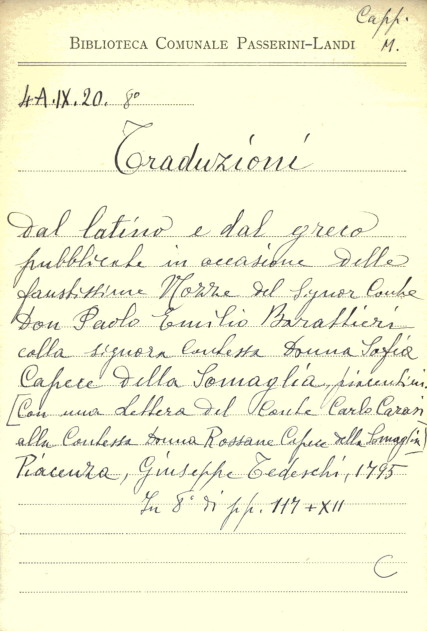 Capp.
M.
BIBLIOTECA COMUNALE PASSERINI-LANDI
4A.IX.20. 8°
Traduzioni
Dal latino e dal greco
pubblicate in occasione delle
faustissime Nozze del Signor Conte
Don Paolo Emilio Barattieri
colla signora Contessa Donna Sofia
Capece della Somaglia, piacentini.
[Con una lettera del Conte Carlo Carasi
alla Contessa Donna Rossane Capece della Somaglia]
Piacenza, Giuseppe Tedeschi, 1795
In 8° di pp. 117 + XII
C